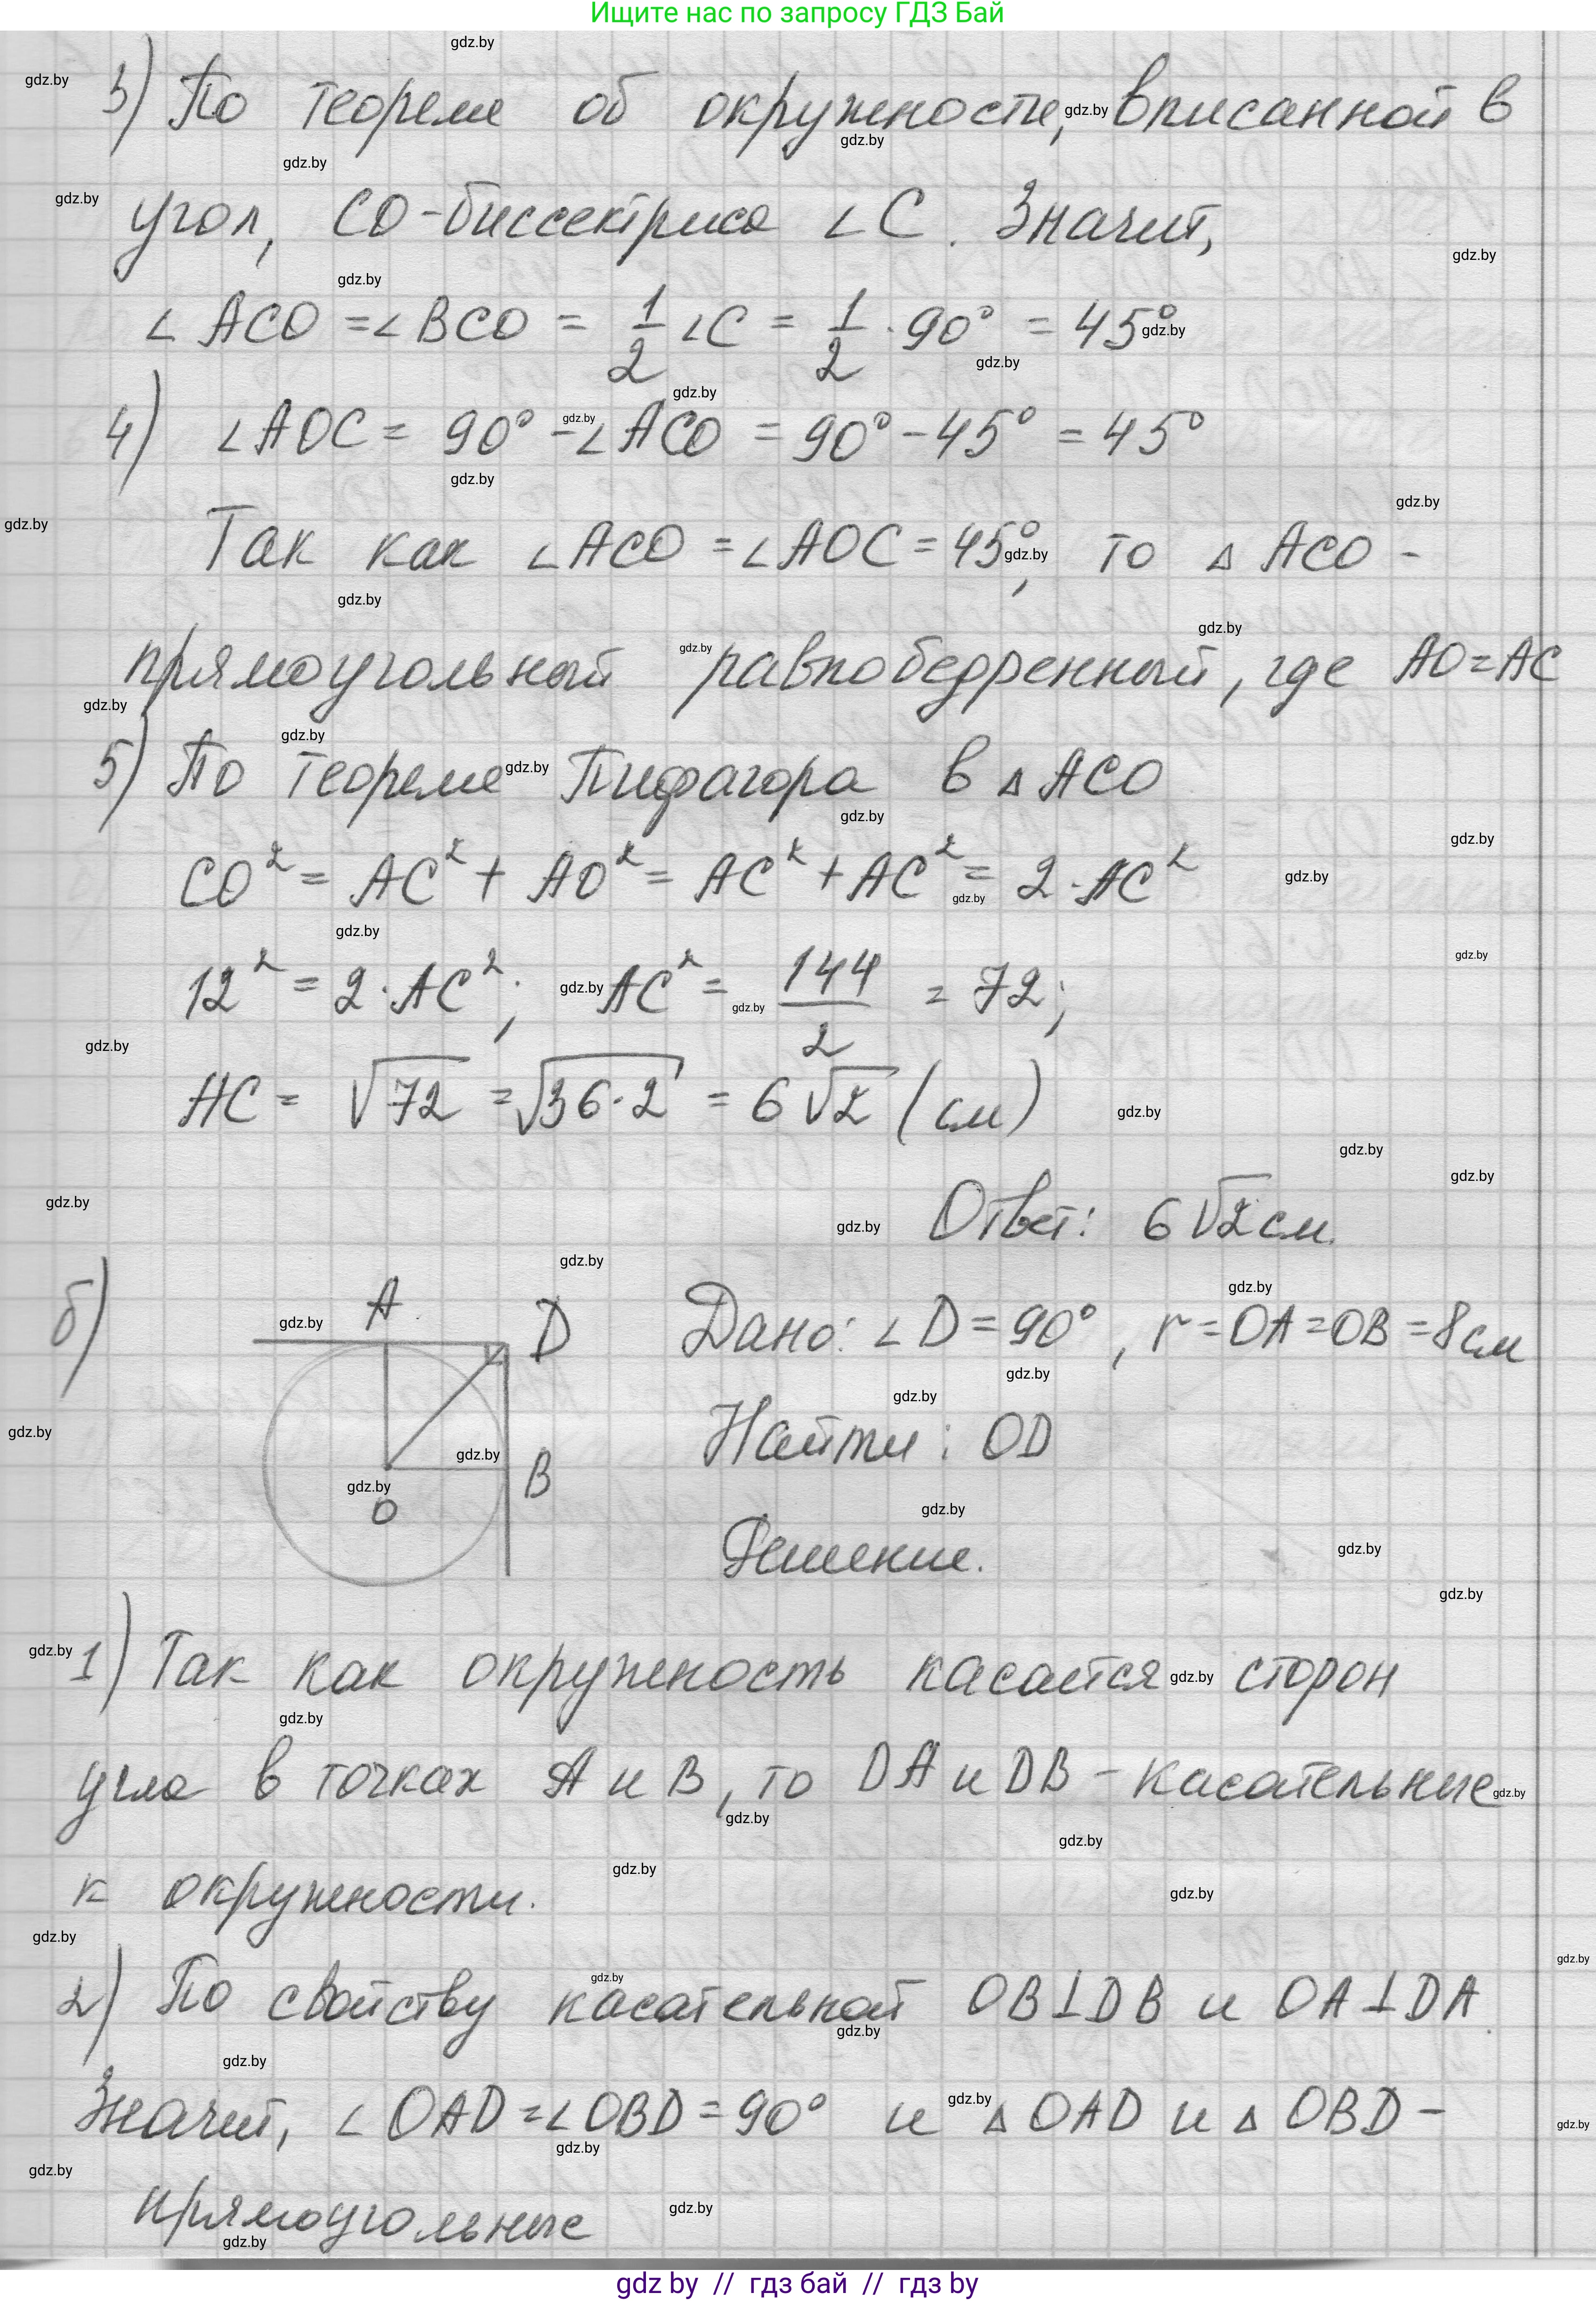 Ищите нас по запросу ГДЗ Бай
3) По теореме об окружности, вписанной в
угол, CO-биссектриса ∠C. Значит,
∠ACO = ∠BCO = 1/2 ∠C = 1/2 · 90° = 45°
4) ∠AOC = 90° - ∠ACO = 90° - 45° = 45°
Так как ∠ACO = ∠AOC = 45°, то △ACO -
прямоугольный равнобедренный, где AO=AC
5) По теореме Пифагора в △ACO
CO² = AC² + AO² = AC² + AC² = 2·AC²
12² = 2·AC²; AC² = 144/2 = 72;
AC = √72 = √36·2 = 6√2 (см)
Ответ: 6√2 см.
б) A D B O
Дано: ∠D = 90°, r=OA=OB=8см
Найти: OD
Решение.
1) Так как окружность касается сторон
угла в точках A и B, то DA и DB - касательные
к окружности.
2) По свойству касательной OB⊥DB и OA⊥DA.
Значит, ∠OAD = ∠OBD = 90° и △OAD и △OBD -
прямоугольные
gdz by // гдз бай // гдз by